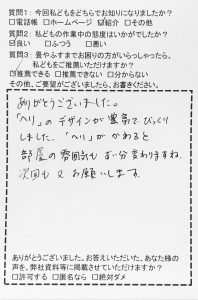 質問1：今回私どもをどちらでお知りになりましたか？
□電話帳 □ホームページ ☑紹介 □その他
質問2：私どもの作業中の態度はいかがでしたか？
☑良い □ふつう □悪い
質問3：畳やふすまでお困りの方がいらっしゃったら、
私どもをご推薦いただけますか？
☑推薦できる □推薦できない □分からない
その他、ご要望がございましたら、お書きください。
ありがとうございました。
「ヘリ」のデザインが豊富でびっくり
しました。「ヘリ」がかわると
部屋の雰囲気も ずい分変わりますね。
次回も又お願いします。
ありがとうございました。お答えいただいた、あなた様の
声を、弊社資料等に掲載させていただけますか？
□許可する □匿名なら □絶対ダメ